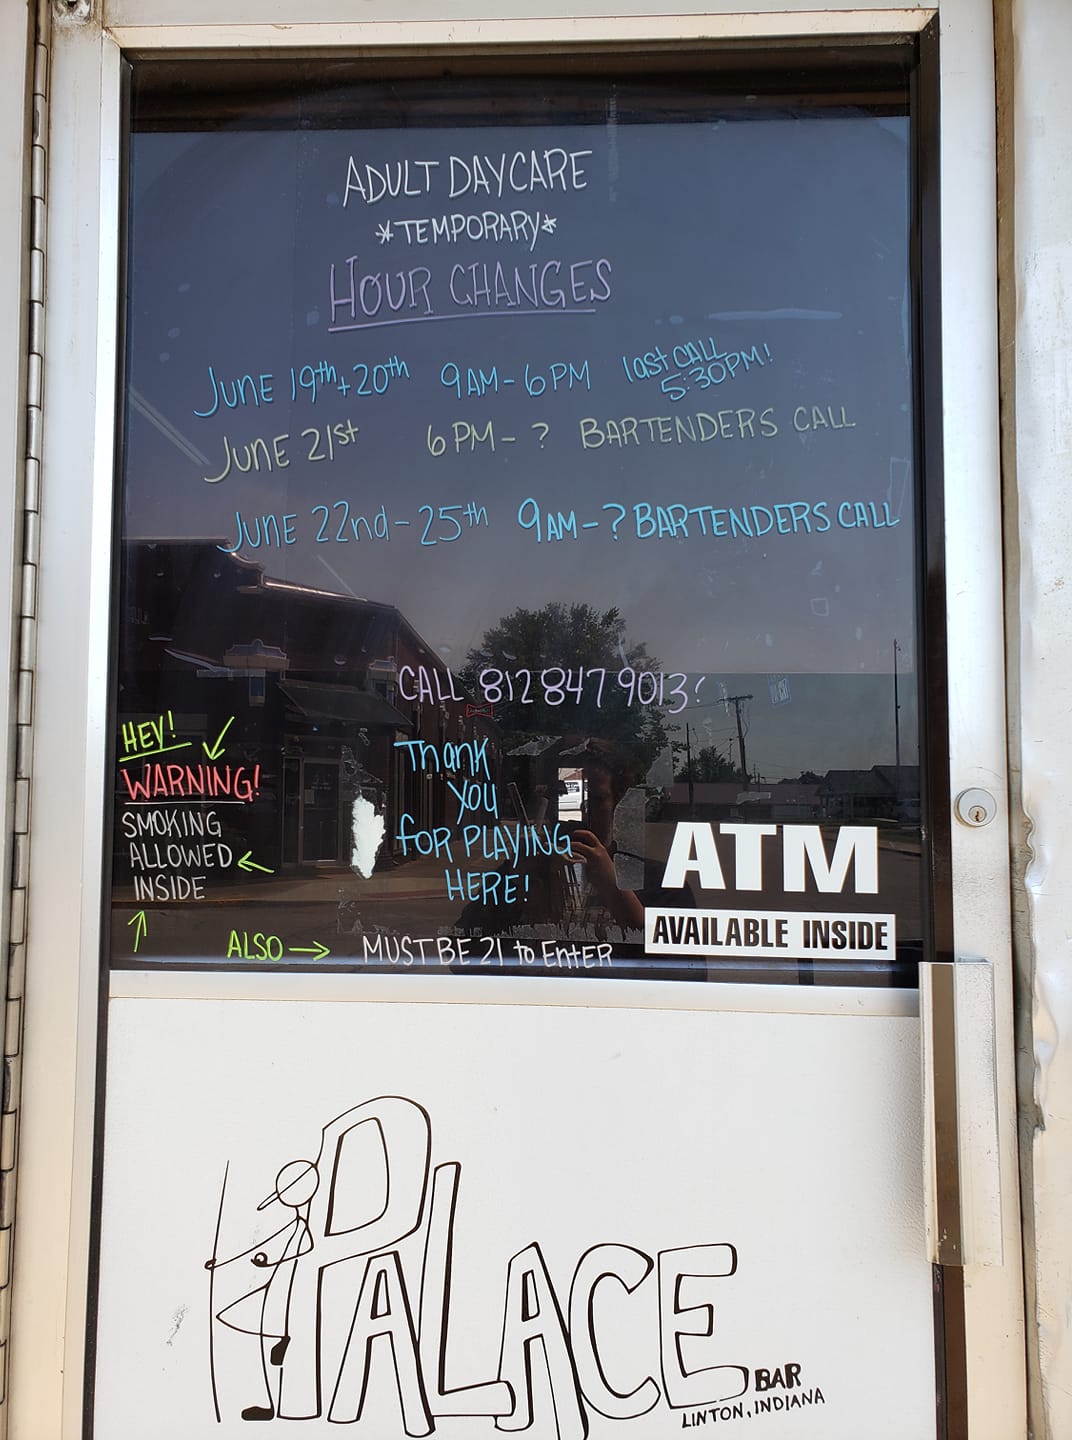 ADULT DAYCARE
*TEMPORARY*
HOUR CHANGES
JUNE 19th+20th 9AM-6PM last CALL 5:30PM!
JUNE 21st 6PM-? BARTENDERS CALL
JUNE 22nd-25th 9AM-? BARTENDERS CALL
CALL 812 847 9013?
HEY!
WARNING!
SMOKING
ALLOWED
INSIDE
Thank
You
for PLAYING
HERE!
ALSO → MUST BE 21 to EntER
ATM
AVAILABLE INSIDE
PALACE
BAR
LINTON, INDIANA